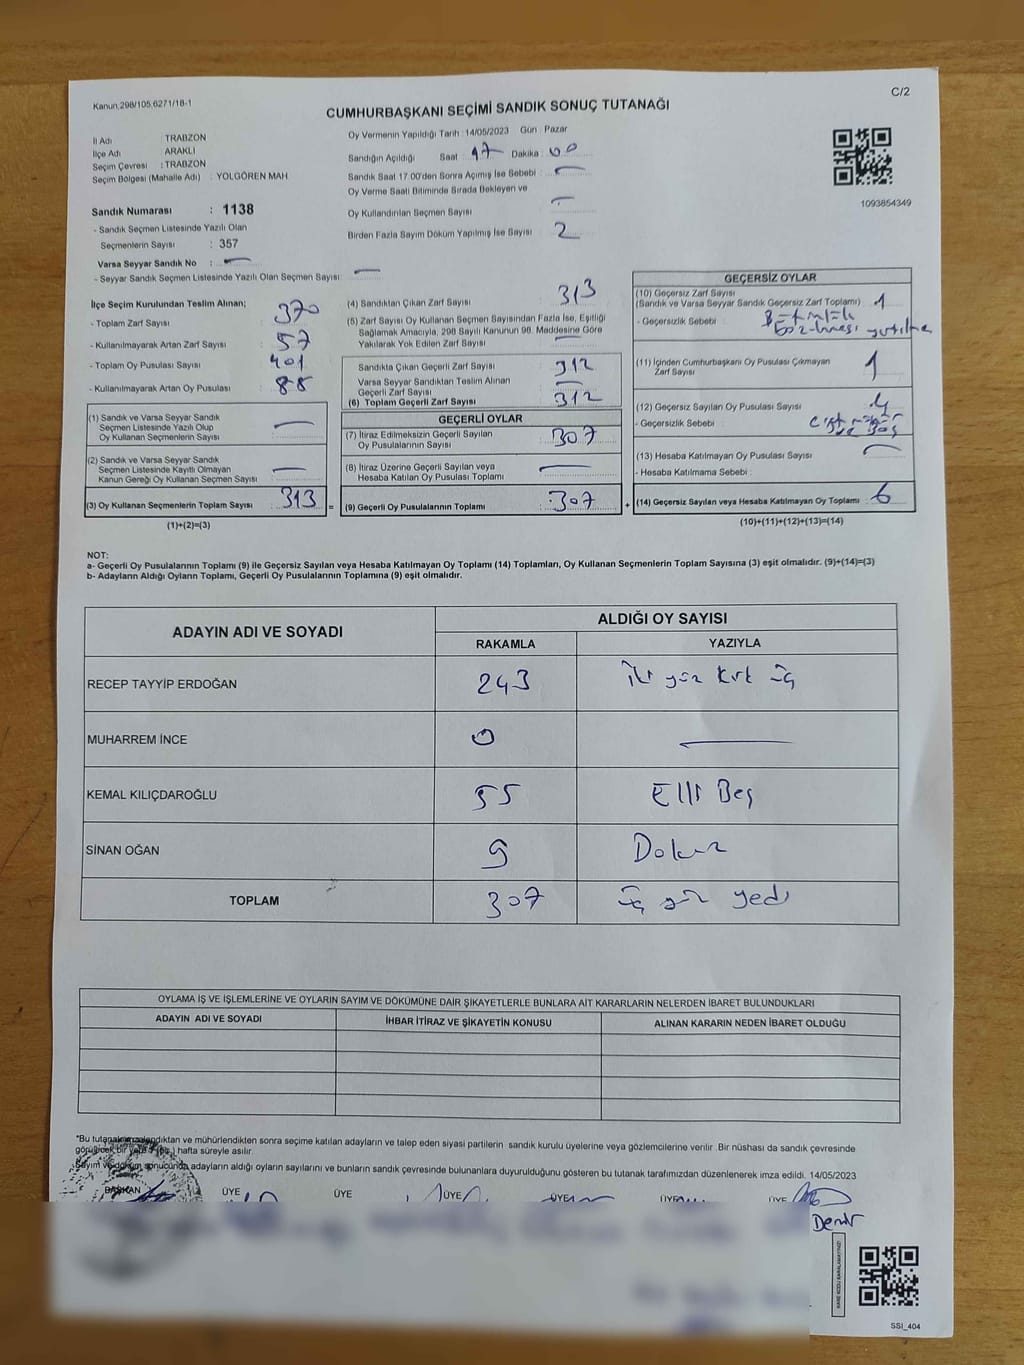 Kanun.298/105,6271/18-1
C/2
CUMHURBAŞKANI SEÇİMİ SANDIK SONUÇ TUTANAĞI
İl Adı : TRABZON
İlçe Adı : ARAKLI
Seçim Çevresi : TRABZON
Seçim Bölgesi (Mahalle Adı) : YOLGÖREN MAH
Sandık Numarası : 1138
- Sandık Seçmen Listesinde Yazılı Olan
Seçmenlerin Sayısı : 357
Varsa Seyyar Sandık No : —
- Seyyar Sandık Seçmen Listesinde Yazılı Olan Seçmen Sayısı : —
Oy Vermenin Yapıldığı Tarih : 14/05/2023 Gün : Pazar
Sandığın Açıldığı Saat : 17 Dakika : 00
Sandık Saat 17.00'den Sonra Açımış İse Sebebi : —
Oy Verme Saati Bitiminde Sırada Bekleyen ve
Oy Kullandırılan Seçmen Sayısı —
Birden Fazla Sayım Döküm Yapılmış İse Sayısı : 2
1093854349
İlçe Seçim Kurulundan Teslim Alınan;
- Toplam Zarf Sayısı : 370
- Kullanılmayarak Artan Zarf Sayısı : 57
- Toplam Oy Pusulası Sayısı : 401
- Kullanılmayarak Artan Oy Pusulası : 88
(1) Sandık ve Varsa Seyyar Sandık
Seçmen Listesinde Yazılı Olup
Oy Kullanan Seçmenlerin Sayısı : —
(2) Sandık ve Varsa Seyyar Sandık
Seçmen Listesinde Kayıtlı Olmayan
Kanun Gereği Oy Kullanan Seçmen Sayısı : —
(3) Oy Kullanan Seçmenlerin Toplam Sayısı : 313 =
(1)+(2)=(3)
(4) Sandıktan Çıkan Zarf Sayısı : 313
(5) Zarf Sayısı Oy Kullanan Seçmen Sayısından Fazla İse, Eşitliği
Sağlamak Amacıyla, 298 Sayılı Kanunun 98. Maddesine Göre
Yakılarak Yok Edilen Zarf Sayısı : —
Sandıkta Çıkan Geçerli Zarf Sayısı : 312
Varsa Seyyar Sandıktan Teslim Alınan
Geçerli Zarf Sayısı : —
(6) Toplam Geçerli Zarf Sayısı : 312
GEÇERLİ OYLAR
(7) İtiraz Edilmeksizin Geçerli Sayılan
Oy Pusulalarının Sayısı : 307
(8) İtiraz Üzerine Geçerli Sayılan veya
Hesaba Katılan Oy Pusulası Toplamı : —
(9) Geçerli Oy Pusulalarının Toplamı : 307 +
GEÇERSİZ OYLAR
(10) Geçersiz Zarf Sayısı
(Sandık ve Varsa Seyyar Sandık Geçersiz Zarf Toplamı) : 1
- Geçersizlik Sebebi :
(11) İçinden Cumhurbaşkanı Oy Pusulası Çıkmayan
Zarf Sayısı : 1
(12) Geçersiz Sayılan Oy Pusulası Sayısı : 4
- Geçersizlik Sebebi :
(13) Hesaba Katılmayan Oy Pusulası Sayısı : —
- Hesaba Katılmama Sebebi :
(14) Geçersiz Sayılan veya Hesaba Katılmayan Oy Toplamı : 6
(10)+(11)+(12)+(13)=(14)
NOT:
a- Geçerli Oy Pusulalarının Toplamı (9) ile Geçersiz Sayılan veya Hesaba Katılmayan Oy Toplamı (14) Toplamları, Oy Kullanan Seçmenlerin Toplam Sayısına (3) eşit olmalıdır. (9)+(14)=(3)
b- Adayların Aldığı Oyların Toplamı, Geçerli Oy Pusulalarının Toplamına (9) eşit olmalıdır.
ADAYIN ADI VE SOYADI
ALDIĞI OY SAYISI
RAKAMLA YAZIYLA
RECEP TAYYİP ERDOĞAN 243 İki yüz kırk üç
MUHARREM İNCE 0 —
KEMAL KILIÇDAROĞLU 55 Elli Beş
SİNAN OĞAN 9 Dokuz
TOPLAM 307 üç yüz yedi
OYLAMA İŞ VE İŞLEMLERİNE VE OYLARIN SAYIM VE DÖKÜMÜNE DAİR ŞİKAYETLERLE BUNLARA AİT KARARLARIN NELERDEN İBARET BULUNDUKLARI
ADAYIN ADI VE SOYADI İHBAR İTİRAZ VE ŞİKAYETİN KONUSU ALINAN KARARIN NEDEN İBARET OLDUĞU
*Bu tutanak imzalandıktan ve mühürlendikten sonra seçime katılan adayların ve talep eden siyasi partilerin sandık kurulu üyelerine veya gözlemcilerine verilir. Bir nüshası da sandık çevresinde
görülecek bir yere (bir) hafta süreyle asılır.
Sayım ve döküm sonucunda adayların aldığı oyların sayılarını ve bunların sandık çevresinde bulunanlara duyurulduğunu gösteren bu tutanak tarafımızdan düzenlenerek imza edildi. 14/05/2023
BAŞKAN ÜYE ÜYE ÜYE ÜYE ÜYE ÜYE
Demir
KARE KODU KARALAMAYINIZ!
SSI_404